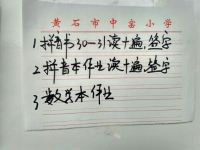 黄石市中窑小学
1拼音书30-31读十遍,签字
2拼音本作业读十遍,签字
3数学本作业